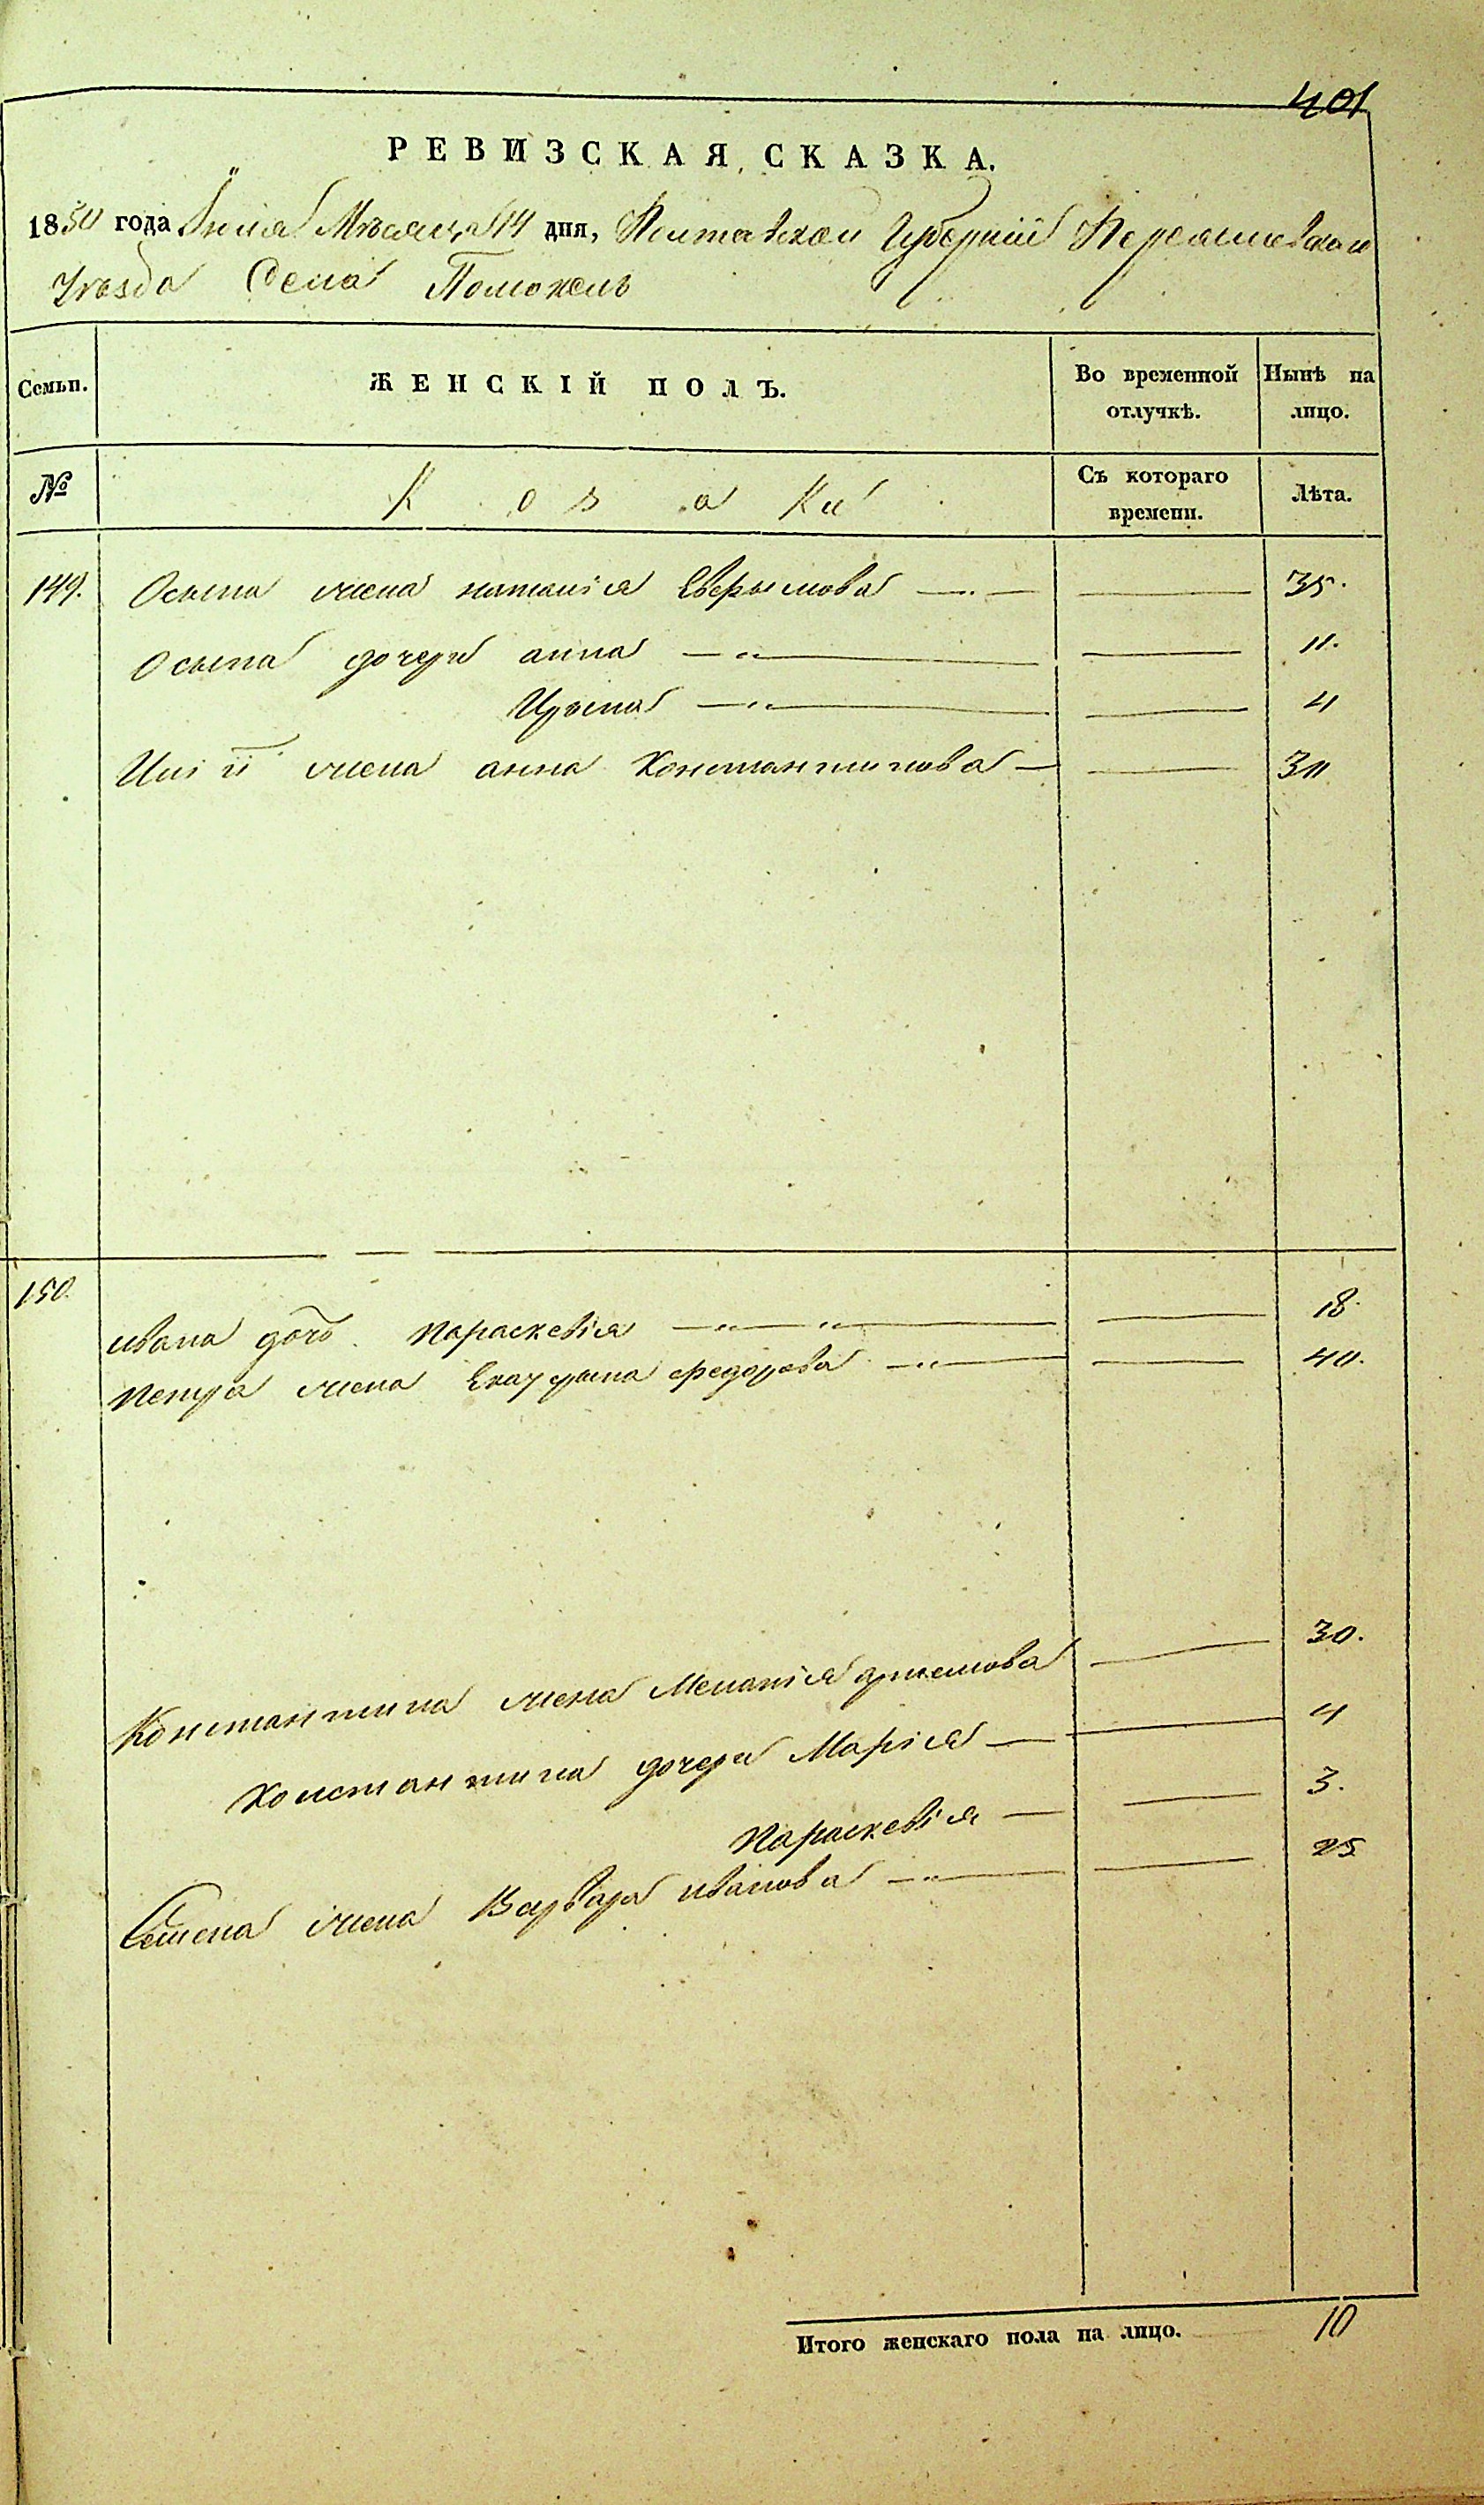 401
РЕВИЗСКАЯ СКАЗКА.
1850 года Июля Мѣсяца 14 дня, Полтавской Губерніи Переяславскаго
Уѣзда Села Помоклъ
Семьи. ЖЕНСКІЙ ПОЛЪ. Во временной отлучкѣ. Нынѣ на лицо.
№ Козаки Съ котораго времени. Лѣта.
149. Осыпа жена наталія Ефрымова 35.
Осыпа дочери анна 11.
Ирына 4
жена анна Константинова 30
150. ивана дочь Параскевія 18.
Петра жена Екатрына федорова 40.
Константина жена Меланія артемова 30.
Константина дочери Марія 4
Параскевія 3.
Семена жена Варвара иванова 25
Итого женскаго пола на лицо. 10